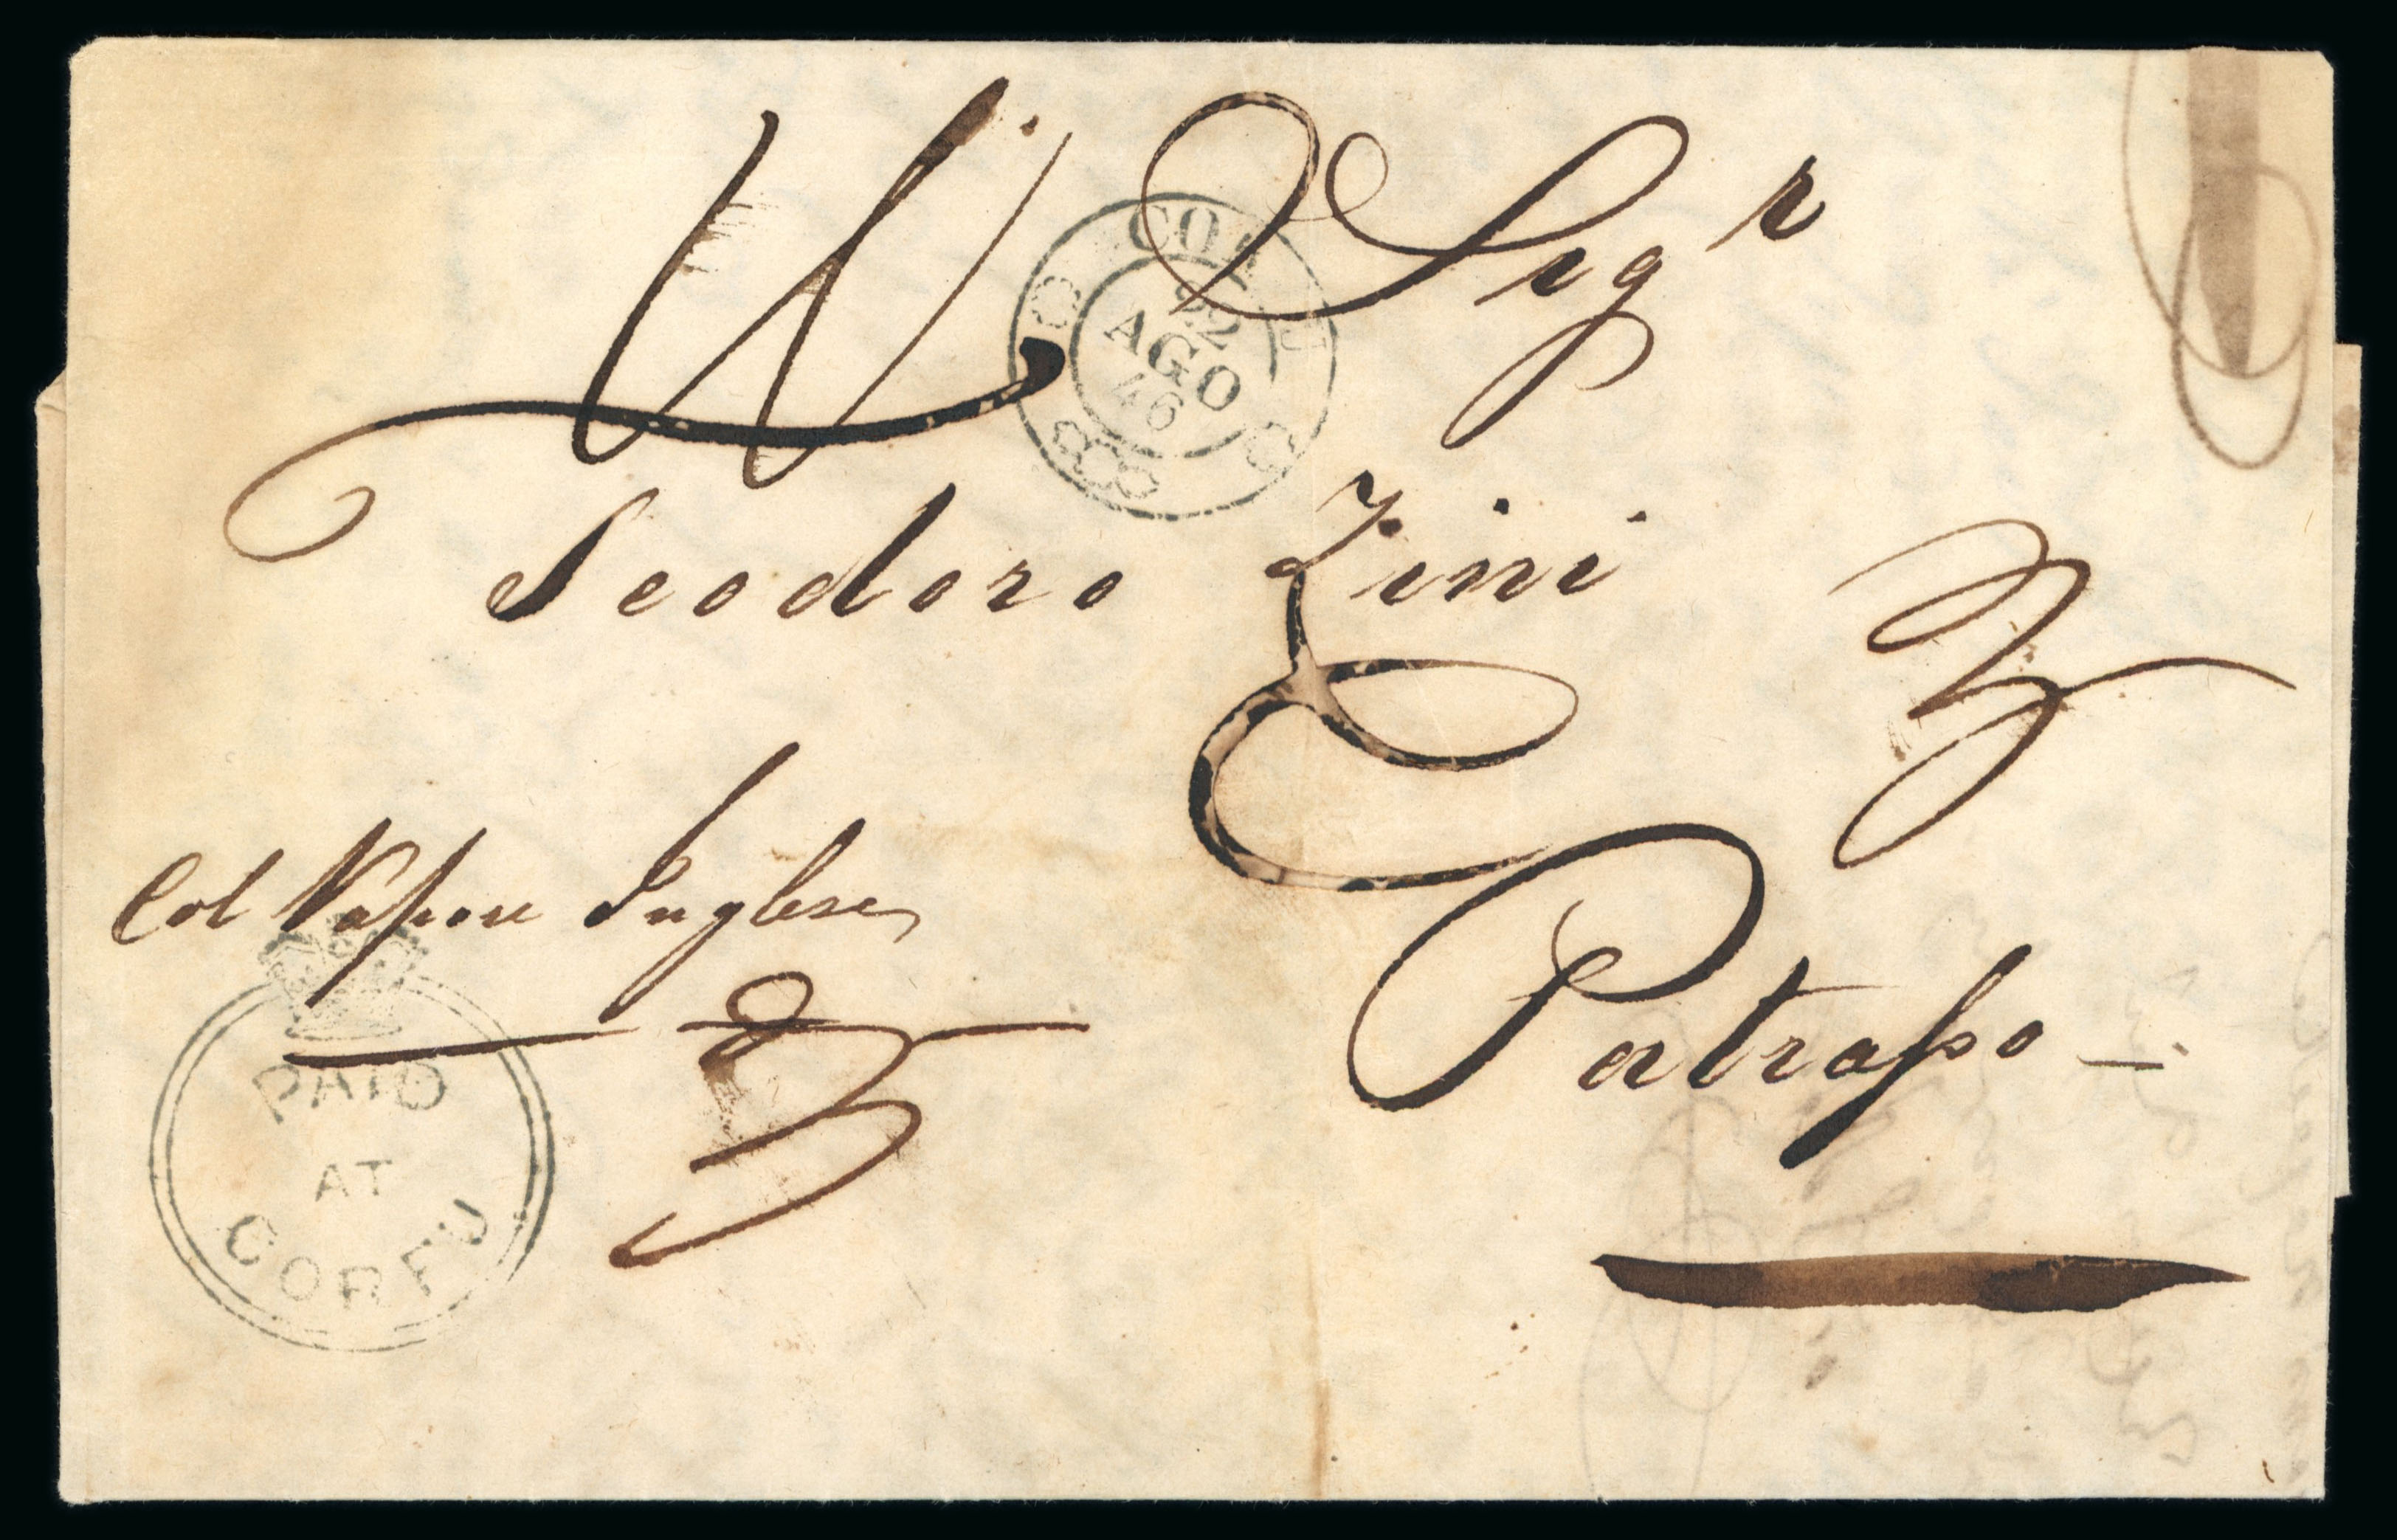 Al Sigr
CORFU
22
AGO
46
Teodoro Zini
Col Vapore Inglese
Patrasso
PAID
AT
CORFU